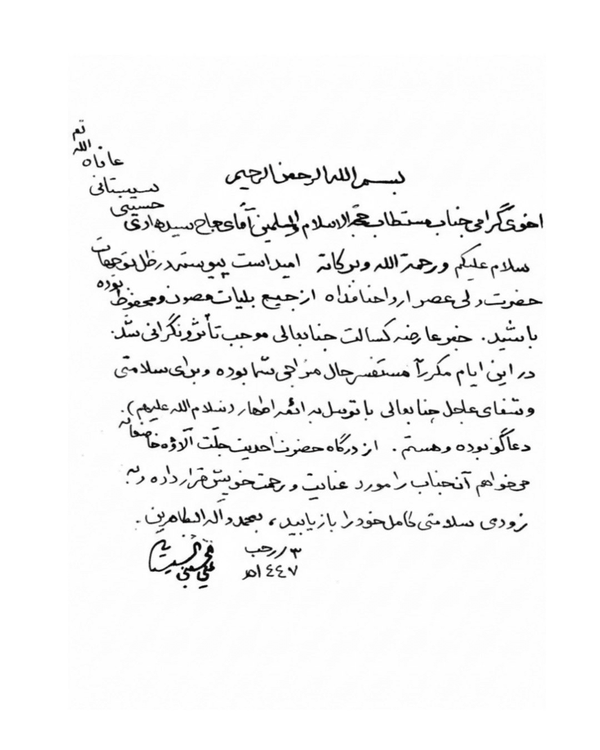 بسم الله الرحمن الرحیم
اخوی گرامی جناب مستطاب حجة الاسلام والمسلمین آقای حاج سید هادی حسینی سیستانی عافاه الله تعالی
سلام علیکم ورحمة الله وبرکاته امید است پیوسته در ظل توجهات
حضرت ولی عصر ارواحنا فداه از جمیع بلیات مصون و محفوظ بوده
باشید. خبر عارضه کسالت جنابعالی موجب تأثر و نگرانی شد.
در این ایام مکرراً مستفسر حال مزاجی شما بوده و برای سلامتی
و شفای عاجل جنابعالی با توسل به ائمه اطهار (سلام الله علیهم)
دعاگو بوده و هستم. از درگاه حضرت احدیت جلّت آلاؤه خاضعانه
می‌خواهم آنجناب را مورد عنایت و رحمت خویش قرار داده و به
زودی سلامتی کامل خود را باز یابید، بمحمد وآله الطاهرین.
رجب
١٤٤٧هـ
علي الحسيني السيستاني